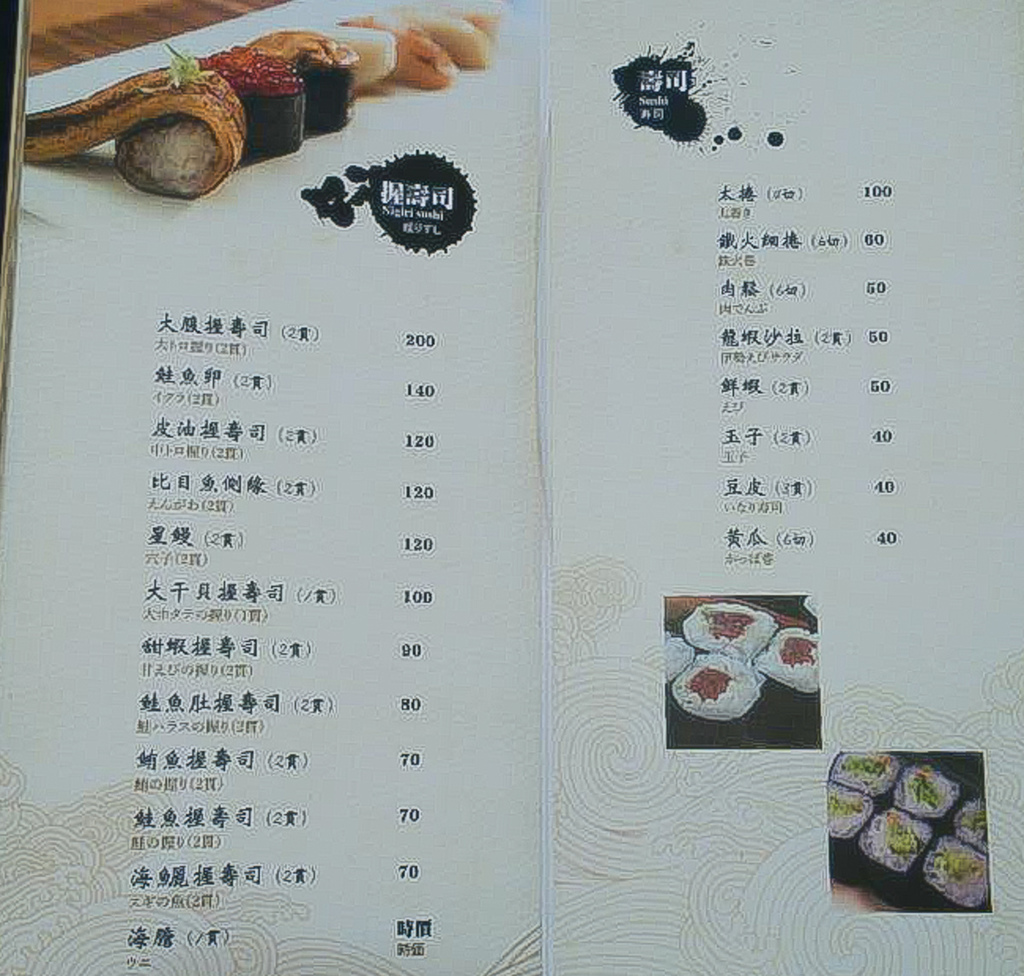 握壽司
Nigiri sushi
握りずし
大腹握壽司 (2貫) 200
大トロ握り(2貫)
鮭魚卵 (2貫) 140
イクラ(2貫)
皮油握壽司 (2貫) 120
中トロ握り(2貫)
比目魚側緣 (2貫) 120
えんがわ(2貫)
星鰻 (2貫) 120
穴子(2貫)
大干貝握壽司 (1貫) 100
大ホタテの握り(1貫)
甜蝦握壽司 (2貫) 90
甘えびの握り(2貫)
鮭魚肚握壽司 (2貫) 80
鮭ハラスの握り(2貫)
鮪魚握壽司 (2貫) 70
鮪の握り(2貫)
鮭魚握壽司 (2貫) 70
鮭の握り(2貫)
海鱺握壽司 (2貫) 70
スギの魚(2貫)
海膽 (1貫) 時價
ウニ 時価
壽司
Sushi
寿司
太捲 100
太巻き
鐵火細捲 (6切) 60
鉄火巻
肉鬆 (6切) 50
肉でんぶ
龍蝦沙拉 (2貫) 50
伊勢えびサラダ
鮮蝦 (2貫) 50
えび
玉子 (2貫) 40
玉子
豆皮 (3貫) 40
いなり寿司
黃瓜 (6切) 40
かっぱ巻